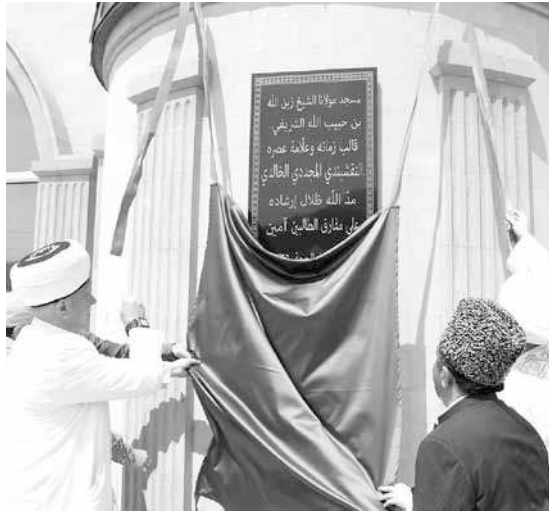 مسجد مولانا الشيخ زين الله
بن حبيب الله الشريفي.
قالب زمانه وعلامة عصره
النقشبندي المجددي الخالدي
مدّ الله ظلال إرشاده
على مفارق الطالبين آمين